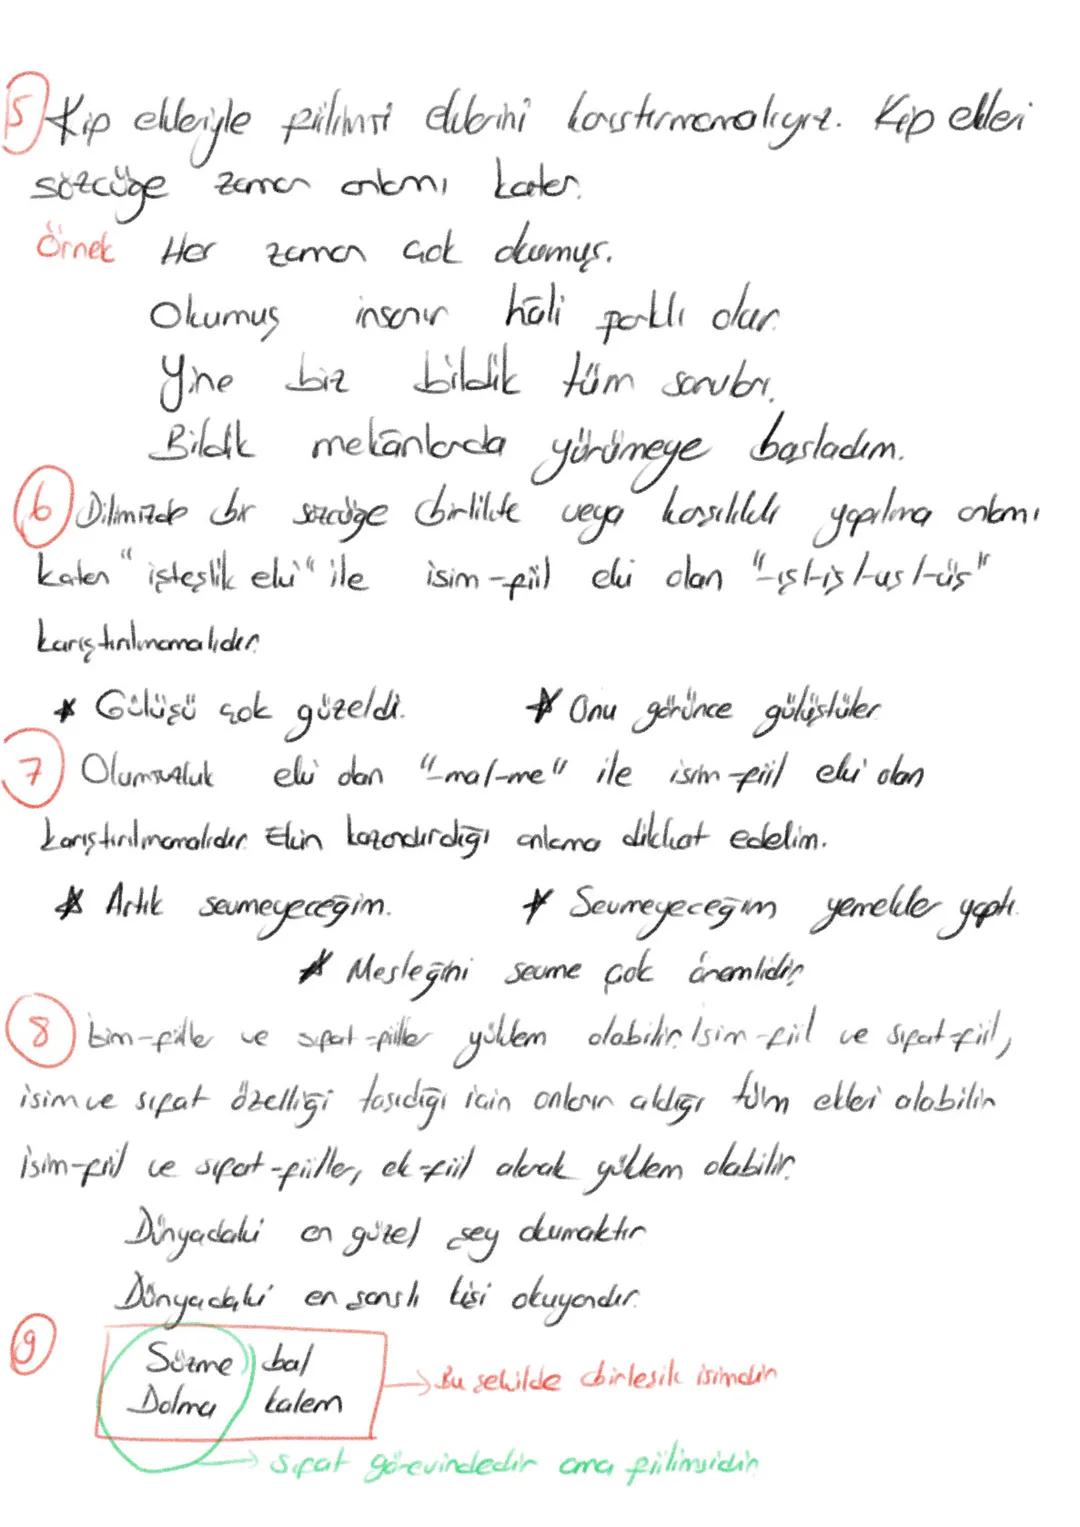 5 Kip ekleriyle fiilimsi eklerini karıştırmamalıyız. Kip ekleri
sözcüğe zaman anlamı katar.
Örnek Her zaman çok okumuş.
Okumuş insanın hâli farklı olur.
Yine biz bildik tüm soruları.
Bildik mekânlarda yürümeye başladım.
6 Dilimizde bir sözcüğe birlikte veya karşılıklı yapılma anlamı
katan "işteşlik eki" ile isim-fiil eki olan "-ış/-iş/-uş/-üş"
karıştırılmamalıdır.
* Gülüşü çok güzeldi. * Onu görünce gülüştüler
7 Olumsuzluk eki olan "-ma/-me" ile isim-fiil eki olan
karıştırılmamalıdır. Ekin kazandırdığı anlama dikkat edelim.
* Artık sevmeyeceğim. * Sevmeyeceğim yemekler yaptı.
* Mesleğini sevme çok önemlidir.
8 İsim-fiiller ve sıfat-fiiller yüklem olabilir. İsim-fiil ve sıfat-fiil,
isim ve sıfat özelliği taşıdığı için onların aldığı tüm ekleri alabilir.
İsim-fiil ve sıfat-fiiller, ek-fiil alarak yüklem olabilir.
Dünyadaki en güzel şey okumaktır
Dünyadaki en şanslı kişi okuyandır.
9 Süzme bal
Dolma kalem
→ Bu şekilde birleşik isimdir
→ Sıfat görevindedir ama fiilimsidir